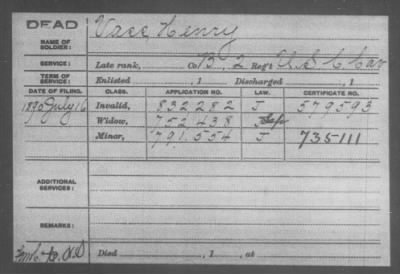 DEAD
NAME OF SOLDIER: Vass Henry
SERVICE: Late rank, Co. B, 2 Reg't U S C Cav
TERM OF SERVICE: Enlisted , 1 Discharged , 1
DATE OF FILING. CLASS. APPLICATION NO. LAW. CERTIFICATE NO.
1890 July 16 Invalid, 832282 J 579593
Widow, 752,438
Minor, 791,554 J 735111
ADDITIONAL SERVICES:
REMARKS:
Died , 1 , at